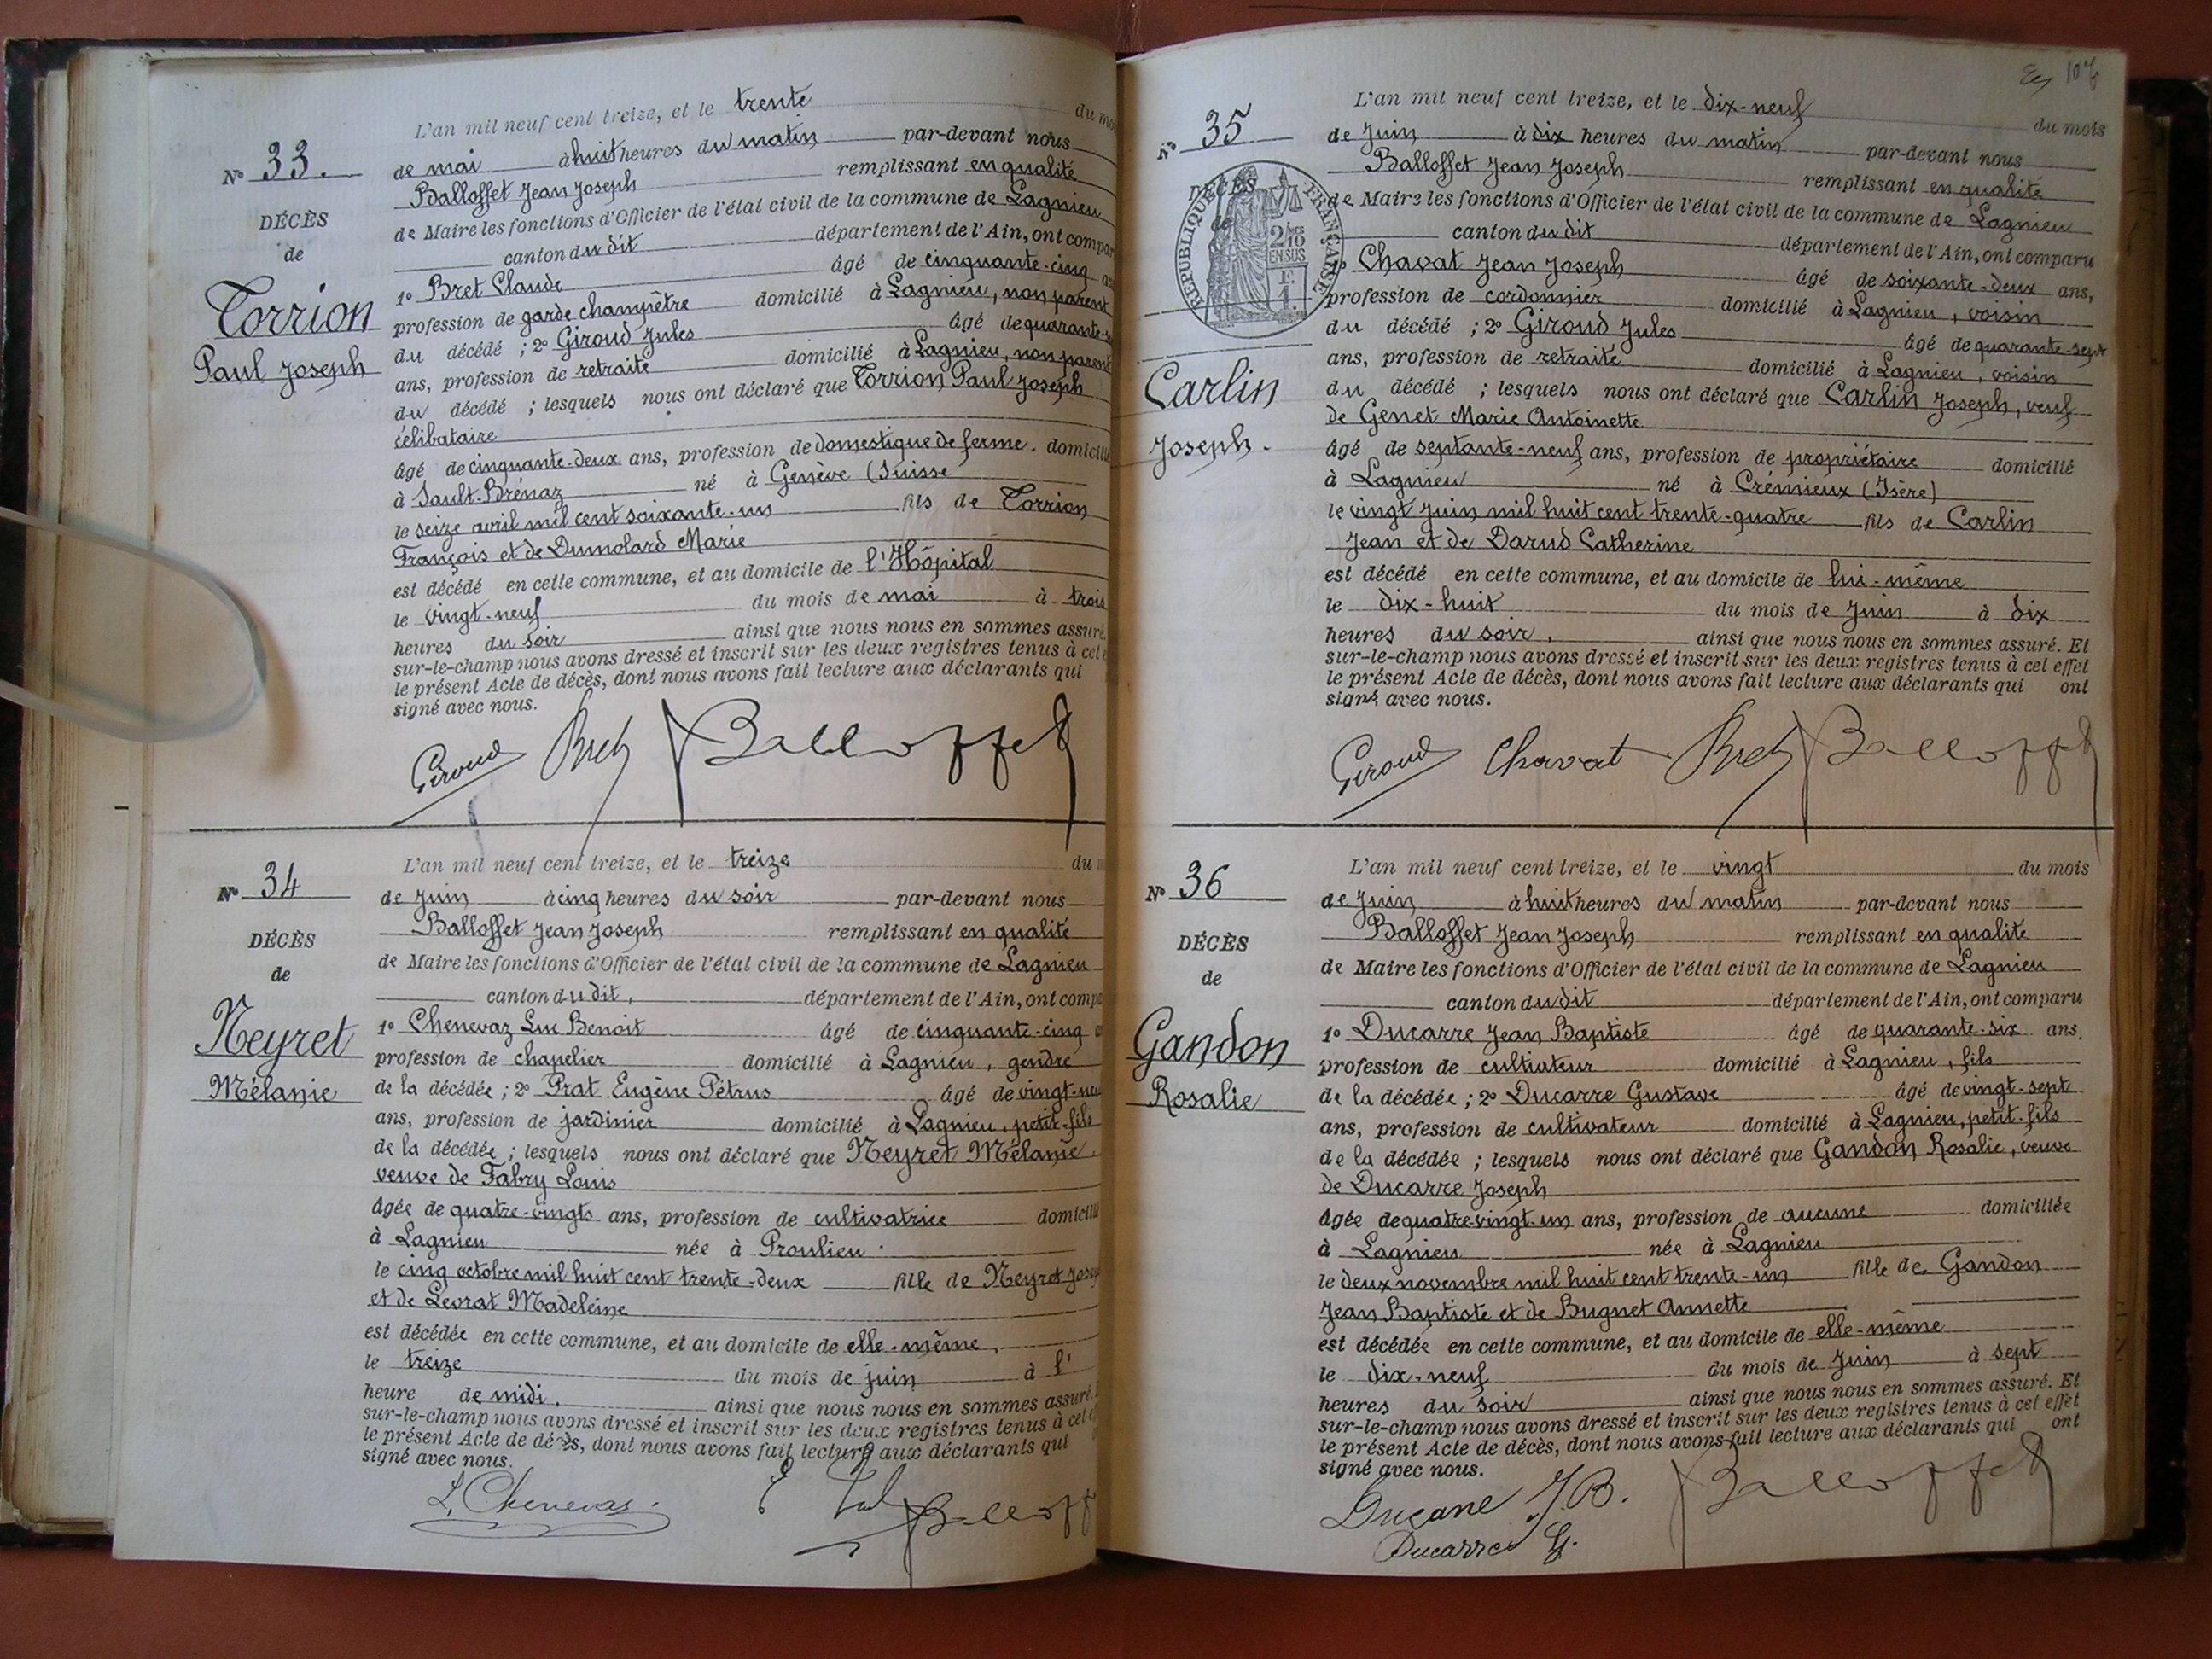 N° 33.
DÉCÈS
de
Torrion
Paul Joseph
L'an mil neuf cent treize, et le trente du mo
de mai à huit heures du matin par-devant nous
Balloffet Jean Joseph remplissant en qualité
de Maire les fonctions d'Officier de l'état civil de la commune de Lagnieu
canton du dit département de l'Ain, ont compar
1° Bret Claude âgé de cinquante-cinq
profession de garde champêtre domicilié à Lagnieu, non parent
du décédé ; 2° Giroud Jules âgé de quarante-
ans, profession de retraité domicilié à Lagnieu, non parent
du décédé ; lesquels nous ont déclaré que Torrion Paul Joseph
célibataire
âgé de cinquante-deux ans, profession de domestique de ferme. domicili
à Sault-Brénaz né à Genève (Suisse
le seize avril mil cent soixante-un fils de Torrion
François et de Dumolard Marie
est décédé en cette commune, et au domicile de l'Hôpital
le vingt-neuf du mois de mai à trois
heures du soir ainsi que nous nous en sommes assuré.
sur-le-champ nous avons dressé et inscrit sur les deux registres tenus à cet e
le présent Acte de décès, dont nous avons fait lecture aux déclarants qui
signé avec nous.
Giroud Bret Balloffet
N° 34
DÉCÈS
de
Neyret
Mélanie
L'an mil neuf cent treize, et le treize du m
de Juin à cinq heures du soir par-devant nous
Balloffet Jean Joseph remplissant en qualité
de Maire les fonctions d'Officier de l'état civil de la commune de Lagnieu
canton du dit, département de l'Ain, ont compa
1° Chenevaz Luc Benoit âgé de cinquante-cinq
profession de chapelier domicilié à Lagnieu, gendre
de la décédée ; 2° Prat Eugène Pétrus âgé de vingt-neu
ans, profession de jardinier domicilié à Lagnieu, petit-fils
de la décédée ; lesquels nous ont déclaré que Neyret Mélanie,
veuve de Fabry Louis
âgée de quatre-vingts ans, profession de cultivatrice domicili
à Lagnieu née à Proulieu
le cinq octobre mil huit cent trente-deux fille de Neyret Josep
et de Levrat Madeleine
est décédée en cette commune, et au domicile de elle-même,
le treize du mois de juin à l'
heure de midi, ainsi que nous nous en sommes assuré.
sur-le-champ nous avons dressé et inscrit sur les deux registres tenus à cet e
le présent Acte de décès, dont nous avons fait lecture aux déclarants qui
signé avec nous.
L. Chenevas. E Balloff
N° 35
DÉCÈS
de
RÉPUBLIQUE FRANÇAISE
2/10
EN SUS
F.
1.
Carlin
Joseph.
L'an mil neuf cent treize, et le dix-neuf du mois
de Juin à dix heures du matin par-devant nous
Balloffet Jean Joseph remplissant en qualité
de Maire les fonctions d'Officier de l'état civil de la commune de Lagnieu
canton du dit département de l'Ain, ont comparu
1° Chavat Jean Joseph âgé de soixante-deux ans,
profession de cordonnier domicilié à Lagnieu, voisin
du décédé ; 2° Giroud Jules âgé de quarante-sept
ans, profession de retraité domicilié à Lagnieu, voisin
du décédé ; lesquels nous ont déclaré que Carlin Joseph, veuf
de Genet Marie Antoinette
âgé de septante-neuf ans, profession de propriétaire domicilié
à Lagnieu né à Crémieux (Isère)
le vingt Juin mil huit cent trente-quatre fils de Carlin
Jean et de Darud Catherine
est décédé en cette commune, et au domicile de lui-même
le dix-huit du mois de Juin à dix
heures du soir, ainsi que nous nous en sommes assuré. Et
sur-le-champ nous avons dressé et inscrit sur les deux registres tenus à cet effet
le présent Acte de décès, dont nous avons fait lecture aux déclarants qui ont
signé avec nous.
Giroud Chavat Bret Balloffet
N° 36
DÉCÈS
de
Gandon
Rosalie
L'an mil neuf cent treize, et le vingt du mois
de Juin à huit heures du matin par-devant nous
Balloffet Jean Joseph remplissant en qualité
de Maire les fonctions d'Officier de l'état civil de la commune de Lagnieu
canton du dit département de l'Ain, ont comparu
1° Ducarre Jean Baptiste âgé de quarante-six ans.
profession de cultivateur domicilié à Lagnieu, fils
de la décédée ; 2° Ducarre Gustave âgé de vingt-sept
ans, profession de cultivateur domicilié à Lagnieu, petit-fils
de la décédée ; lesquels nous ont déclaré que Gandon Rosalie, veuve
de Ducarre Joseph
âgée de quatre-vingt-un ans, profession de aucune domiciliée
à Lagnieu née à Lagnieu
le deux novembre mil huit cent trente-un fille de Gandon
Jean Baptiste et de Bugnet Annette
est décédée en cette commune, et au domicile de elle-même
le dix-neuf du mois de Juin à sept
heures du soir ainsi que nous nous en sommes assuré. Et
sur-le-champ nous avons dressé et inscrit sur les deux registres tenus à cet effet
le présent Acte de décès, dont nous avons fait lecture aux déclarants qui ont
signé avec nous.
Ducarre J.B. Balloffet
Ducarre G.